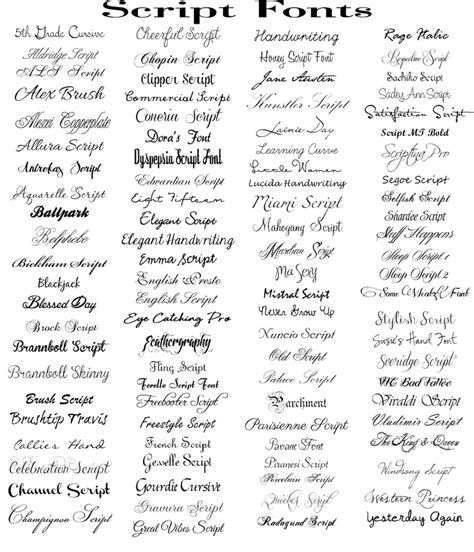 Script Fonts
5th Grade Cursive
Aldridge Script
ALS Script
Alex Brush
Alexei Copperplate
Allura Script
Antrokas Script
Aquarelle Script
Ballpark
Belphebe
Bickham Script
Blackjack
Blessed Day
Brock Script
Brannboll Script
Brannboll Skinny
Brush Script
Brushtip Travis
Callie's Hand
Celebration Script
Channel Script
Champignon Script
Cheerful Script
Chopin Script
Clipper Script
Commercial Script
Coneria Script
Dora's Font
Dyspepsia Script Font
Edwardian Script
Eight Fifteen
Elegant Script
Elegant Handwriting
Emma Script
English Presto
English Script
Eye Catching Pro
Feathergraphy
Fling Script
Forelle Script Font
Freebooter Script
Freestyle Script
French Script
Geselle Script
Gourdie Cursive
Gravura Script
Great Vibes Script
Handwriting
Honey Script Font
Jane Austen
Kunstler Script
Lainie Day
Learning Curve
Little Women
Lucida Handwriting
Miami Script
Mahogany Script
Script
Ma Sexy
Mistral Script
Never Grow Up
Nuncio Script
Old Script
Palace Script
Parchment
Parisienne Script
Pavane Font
Piranesi Script
Porcelain Script
Script
Radagund Script
Rage Italic
Script
Sachiko Script
Sadey Ann Script
Satisfaction Script
Script MS Bold
Scriptina Pro
Segoe Script
Selfish Script
Shardee Script
Stuff Happens
Sloop Script 1
Sloop Script 2
Some Font
Stylish Script
Susie's Hand Font
Script
VTC Bad Tattoo
Vivaldi Script
Vladimir Script
The King & Queen
Windsong Script
Western Princess
Yesterday Again